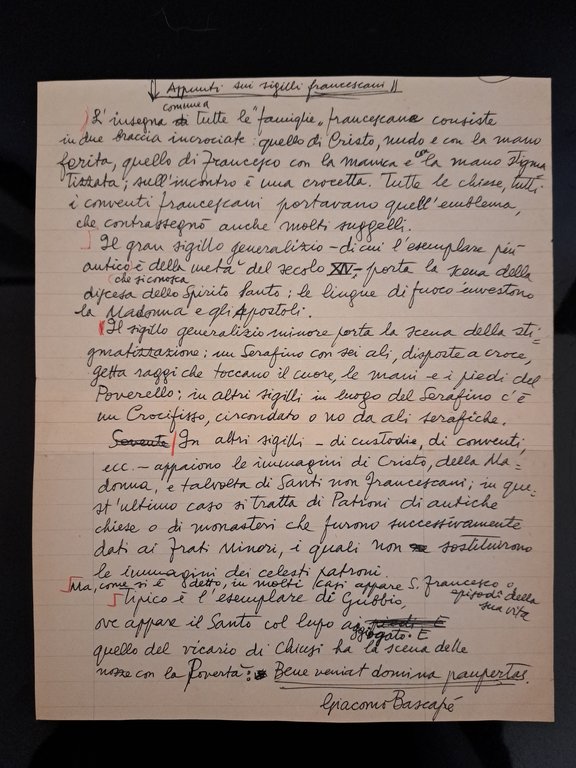 Appunti sui sigilli francescani
comune a
L'insegna di tutte le "famiglie„ francescane consiste
in due braccia incrociate: quello di Cristo, nudo e con la mano
ferita, quello di Francesco con la manica e la mano stigma
tizzata; sull'incontro è una crocetta. Tutte le chiese, tutti
i conventi francescani portavano quell'emblema,
che contrassegnò anche molti suggelli.
Il gran sigillo generalizio – di cui l'esemplare più
antico è della metà del secolo XIV – porta la scena della
che si conosca
discesa dello Spirito Santo: le lingue di fuoco investono
la Madonna e gli Apostoli.
Il sigillo generalizio minore porta la scena della sti=
gmatizzazione: un Serafino con sei ali, disposte a croce,
getta raggi che toccano il cuore, le mani e i piedi del
Poverello: in altri sigilli in luogo del Serafino c'è
un Crocifisso, circondato o no da ali serafiche.
Sovente In altri sigilli – di custodie, di conventi,
ecc. – appaiono le immagini di Cristo, della Ma=
donna, e talvolta di Santi non francescani; in que=
st'ultimo caso si tratta di Patroni di antiche
chiese o di monasteri che furono successivamente
dati ai Frati Minori, i quali non sostituirono
le immagini dei celesti patroni.
Ma, come si è detto, in molti casi appare S. Francesco o
episodi della
sua vita
Tipico è l'esemplare di Gubbio,
ove appare il Santo col lupo ai piedi. È
aggiogato. È
quello del vicario di Chiusi ha la scena delle
nozze con la Povertà: Bene veniat domina paupertas.
Giacomo Bascapé